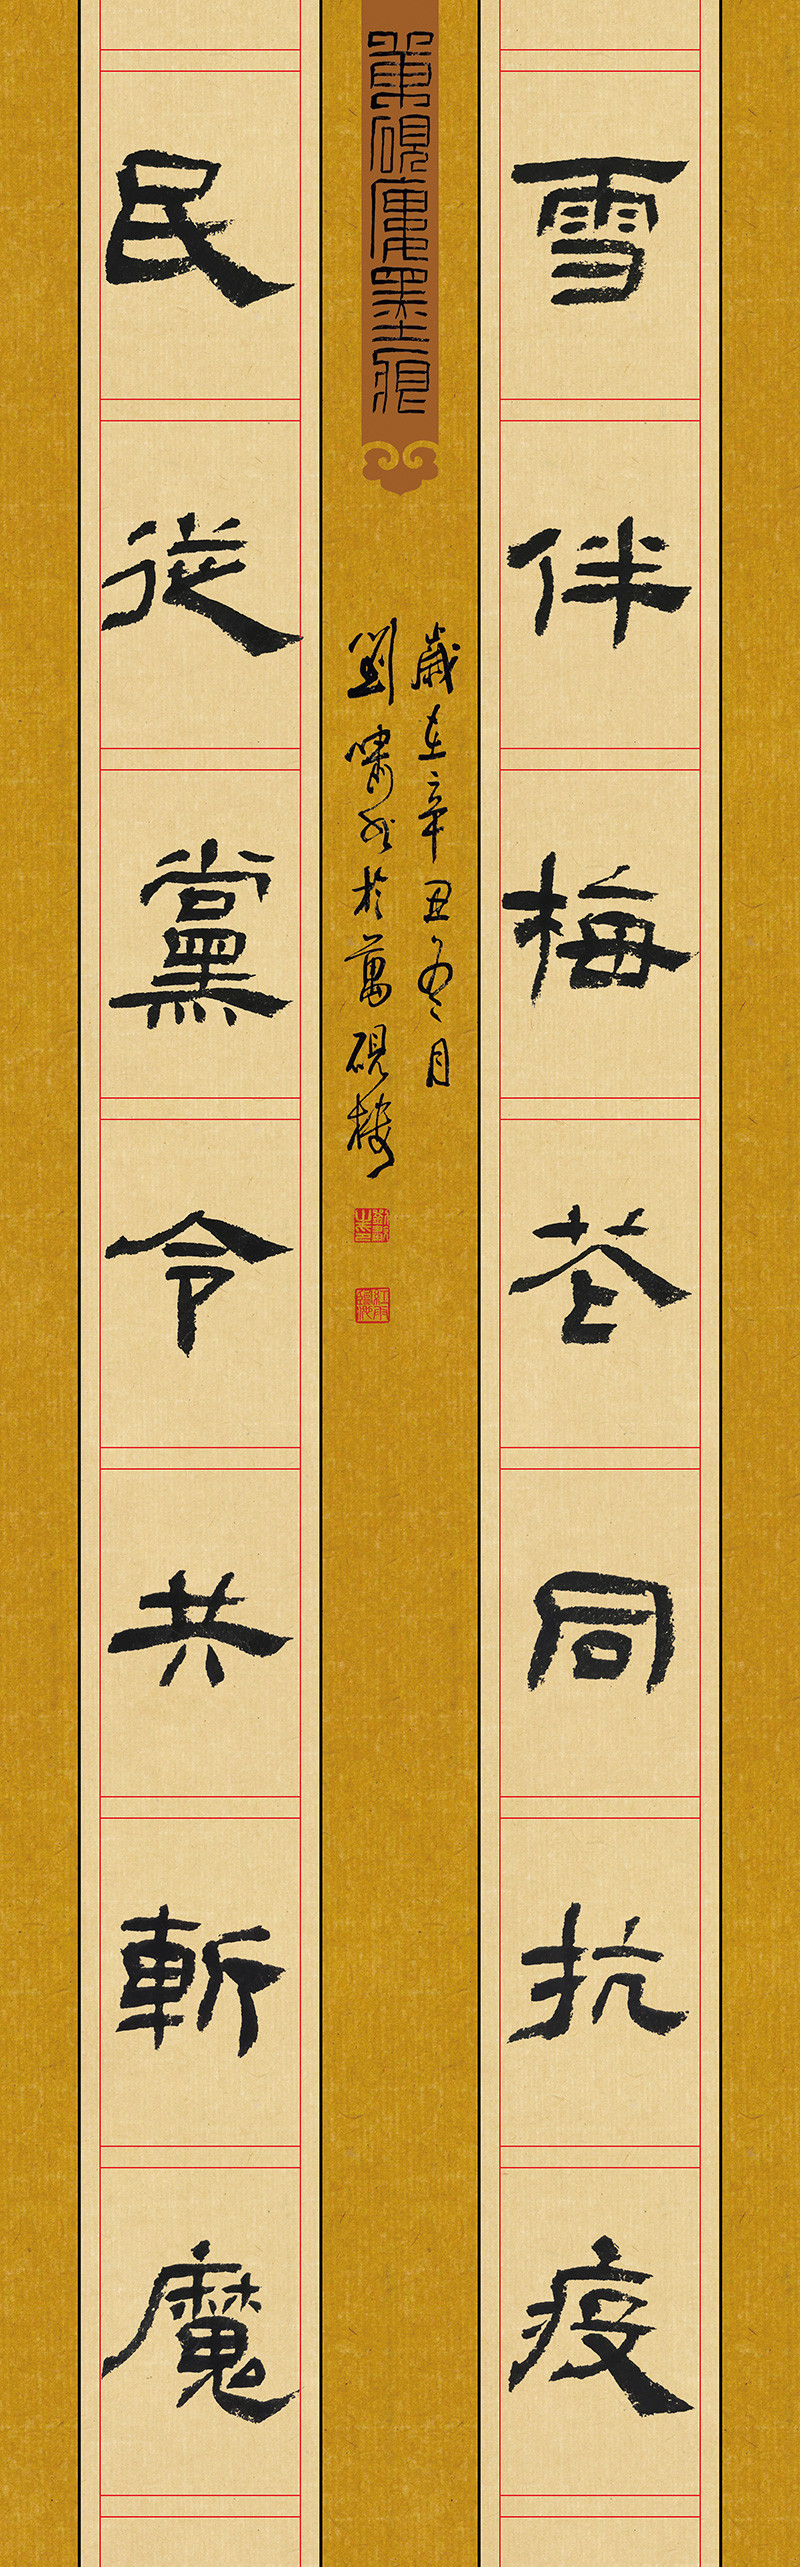 雪伴梅花同抗疫
萬硯廔墨痕
歲在辛丑冬月
劉嘯於萬硯樓
民從黨令共斬魔